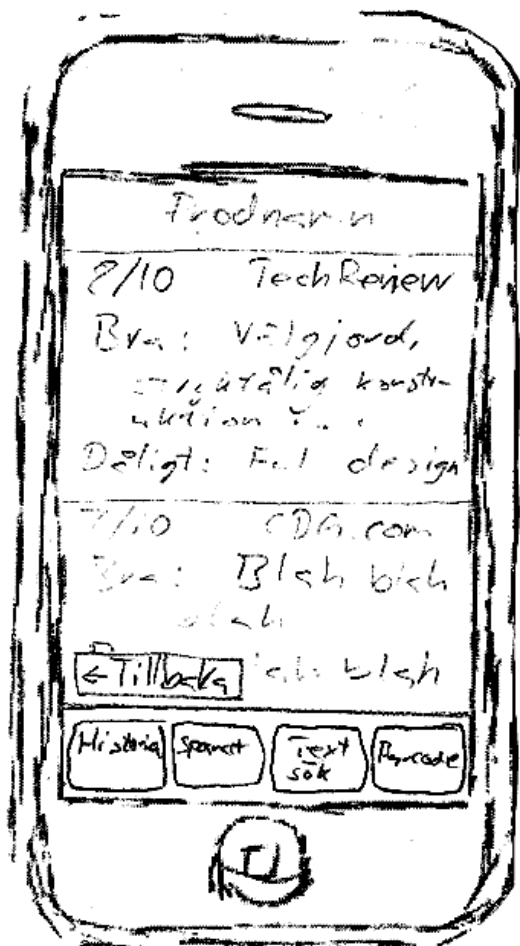 Prodnamn
8/10 TechReview
Bra: Välgjord,
konstr-
uktion
Dåligt: Ful design
7/10
Bra: Blah blah
blah
←Tillbaka blah blah
Historia Sparat Text sök